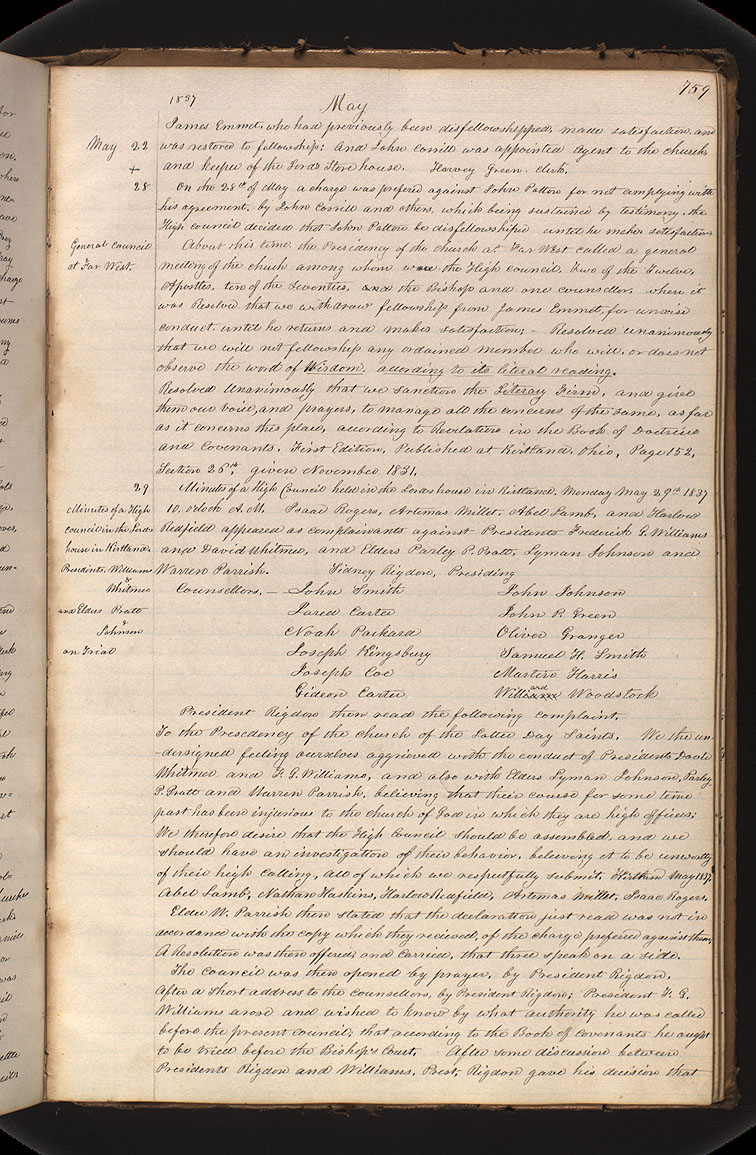 1837 May 759
James Emmet, who had previously been disfellowshipped, made satisfaction, and
May 22 was restored to fellowship; and John Corrill was appointed Agent to the church,
+ and keeper of the Lords Store house. Harvey Green. clerk.
28 On the 28th of May a charge was prefered against John Patton for not complying with
his agreement, by John Corrill and others, which being sustained by testimony, the
High council decided that John Patton be disfellowshiped until he make satisfaction.
General Council About this time, the Presidency of the church at Far West called a general
at Far West. meeting of the church among whom were the High council, two of the Twelve,
Apostles, ten of the Seventies, and the Bishop and one counsellor, when it
was Resolved that we withdraw fellowship from James Emmet, for unwise
conduct, until he returns and makes satisfaction; – Resolved unanimously
that we will not fellowship any ordained member who will, or does not
observe the word of Wisdom, according to its literal reading.
Resolved Unanimously that we sanction the Literary Firm, and give
them our voice, and prayers, to manage all the concerns of the same, as far
as it concerns this place, according to Revelation in the Book of Doctrine
and Covenants, First Edition, Published at Kirtland, Ohio, Page 152,
Section 26th, given November 1831.
29 Minutes of a High Council held in the Lords house in Kirtland, Monday May 29th 1837
Minutes of a High 10. oclock A. M. Isaac Rogers, Artemas Millet, Abel Lamb, and Harlow
council in the Lords Redfield appeared as complainants against Presidents Frederick G. Williams
house in Kirtland. and David Whitmer, and Elders Parley P. Pratt, Lyman Johnson and
Presidents. Williams Warren Parrish. Sidney Rigdon, Presiding
& Whitmer Counsellors, – John Smith John Johnson
and Elders Pratt Jared Carter John P. Green
& Johnson Noah Packard Oliver Granger
on Trial Joseph Kingsbury Samuel H. Smith
Joseph Coe Martin Harris
Gideon Carter Willard Woodstock
President Rigdon then read the following complaint.
To the Presedency of the church of the Latter Day Saints. We the un-
-dersigned feeling ourselves aggrieved with the conduct of Presidents David
Whitmer and F. G. Williams, and also with Elders Lyman Johnson, Parley
P. Pratt and Warren Parrish, believing that their course for some time
past has been injurious to the church of God in which they are high officers;
We therefore desire that the High Council should be assembled, and we
should have an investigation of their behavior, believing it to be unworthy
of their high calling, all of which we respectfully submit. Kirtland May 1837.
Abel Lamb, Nathan Haskins, Harlow Redfield, Artemas Millet, Isaac Rogers,
Elder W. Parrish then stated that the declaration just read was not in
accordance with the copy which they recieved, of the charge prefered against them;
A Resolution was then offered, and carried, that three speak on a side.
The Council was then opened by prayer, by President Rigdon.
After a short address to the counsellors, by President Rigdon; President F. G.
Williams arose and wished to know by what authority he was called
before the present council; that according to the Book of Covenants he ought
to be tried before the Bishop's Court. After some discussion between
Presidents Rigdon and Williams, Prest, Rigdon gave his decision that